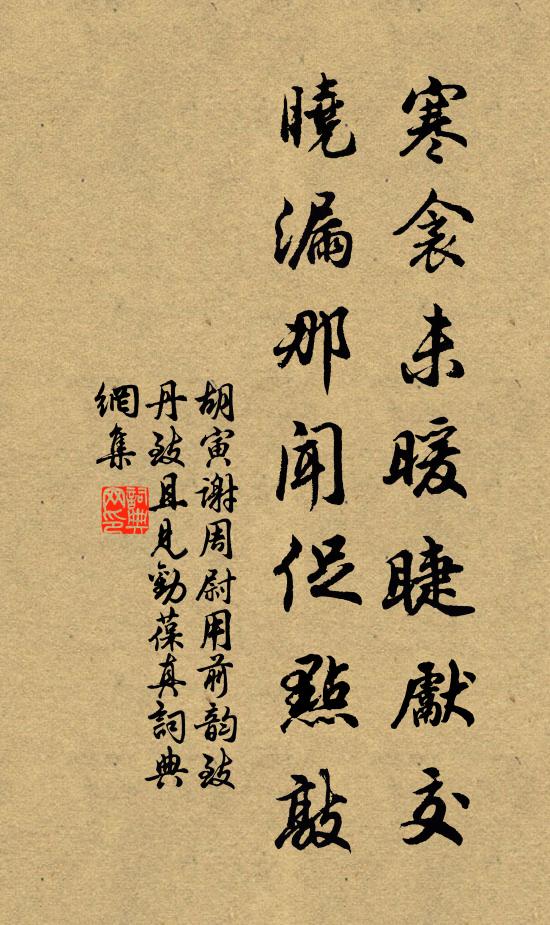 寒衾未暖睫獻交
曉漏那聞促點敲
胡寅謝周尉用前韵致
丹致且見勸葆真詞典
網集
詞典網印